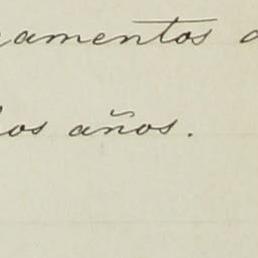 camentos
los años.